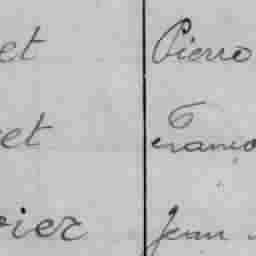 et Pierre
et Franço
vier Jean